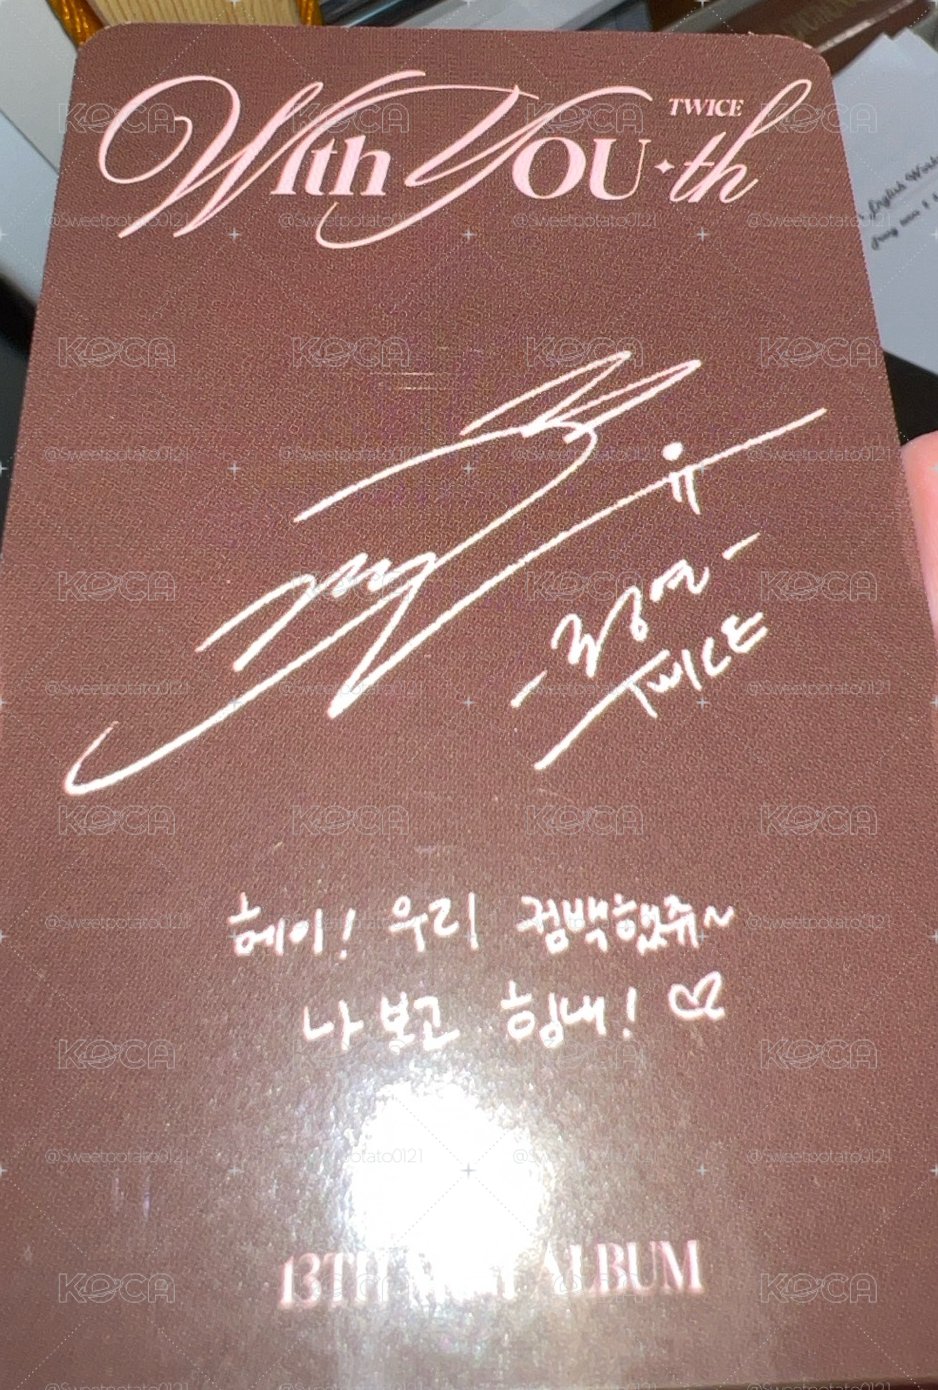 With YOU-th
TWICE
-정연-
TWICE
헤이! 우리 컴백했쥬~
나 보고 힘내! ♡
13TH MINI ALBUM
English Work
KOCA
@Sweetpotato0121